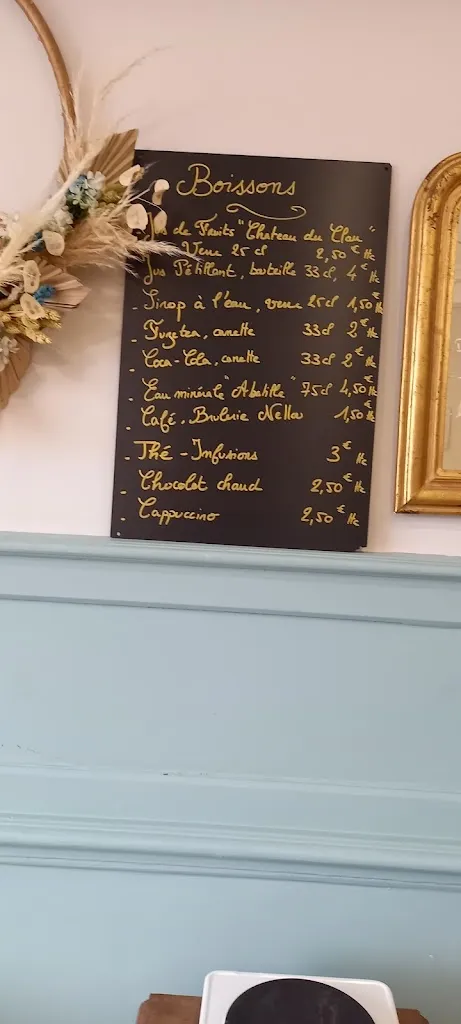 Boissons
Jus de Fruits "Chateau du Clau"
Verre 25 cl 2,50€ ttc
Jus Pétillant, bouteille 33 cl, 4€ ttc
- Sirop à l'eau, verre 25cl 1,50€ ttc
- Fuzetea, canette 33cl 2€ ttc
- Coca-Cola, canette 33cl 2€ ttc
- Eau minérale "Abatille" 75cl 4,50€ ttc
- Café, Brulerie Nella 1,50€ ttc
- Thé - Infusions 3€ ttc
- Chocolat chaud 2,50€ ttc
- Cappuccino 2,50€ ttc